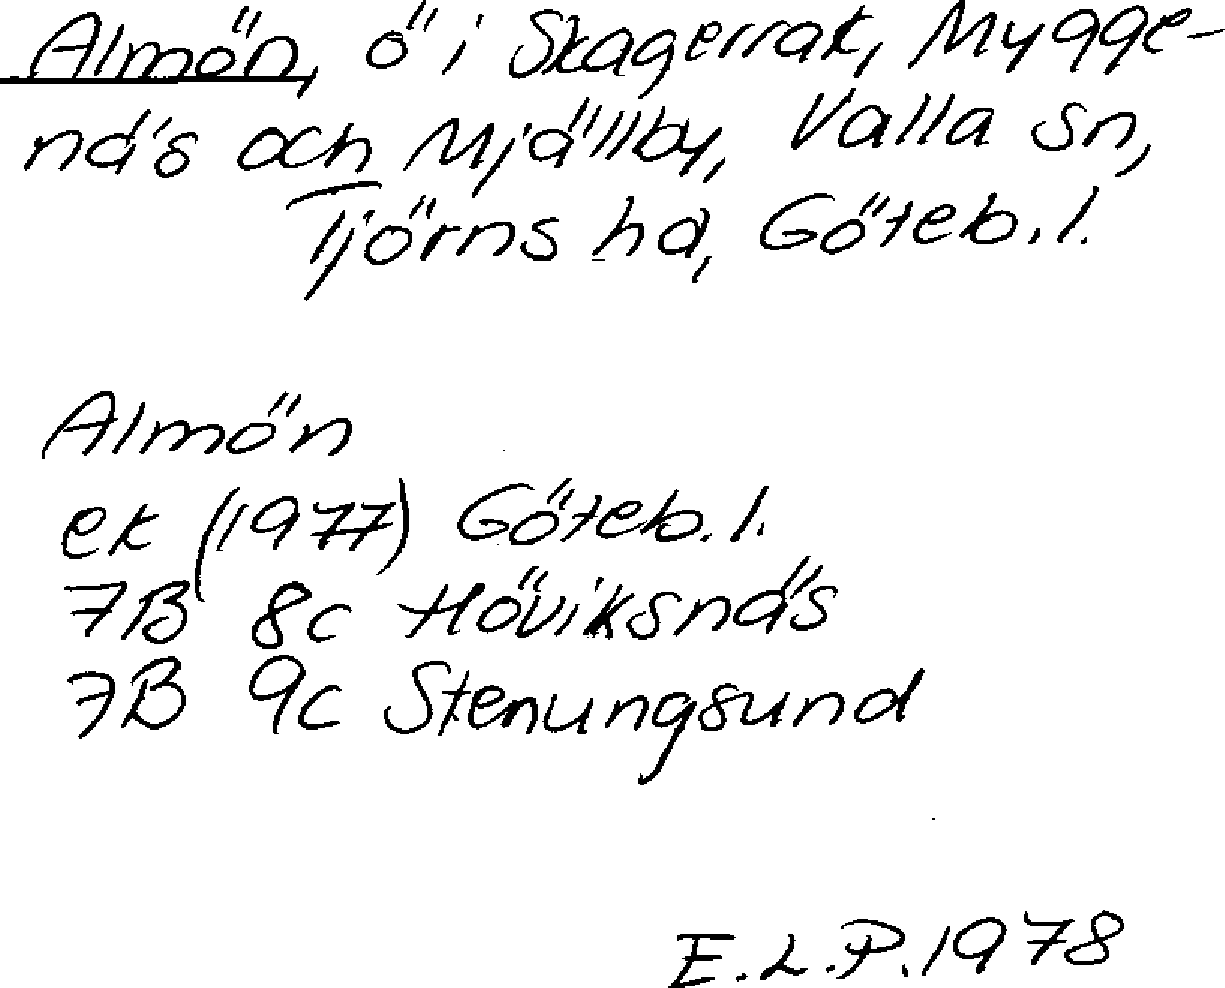 Almön, ö i Skagerrak, Mygge-
näs och Mjällby, Valla sn,
Tjörns hd, Göteb. l.
Almön
ek (1977) Göteb. l.
7B 8c Höviksnäs
7B 9c Stenungsund
E.L.P. 1978